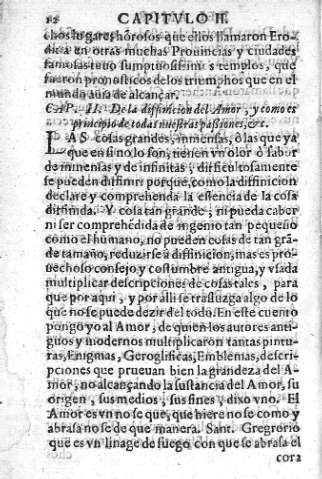 12 CAPITVLO II.
chos lugares hōrosos que ellos llamaron Ero-
dica en otras muchas Prouincias y ciudades
famosas tuuo sumptuosissimos templos, que
fueron pronosticos de los triumphos que en el
mundo auia de alcançar.
CAP. II. De la diffinicion del Amor, y como es
principio de todas nuestras passiones, &c.
LAS cosas grandes, inmensas, ò las que ya
que en si no lo son, tienen vn olor ò sabor
de inmensas y de infinitas, dificultosamente
se pueden difinir; porque, como la diffinicion
declare y comprehenda la essencia de la cosa
difinida. Y cosa tan grande, ni pueda caber
ni ser comprehēdida de ingenio tan pequeño
como el humano, no pueden cosas de tan grā-
de tamaño, reduzirse à diffinicion, mas es pro-
uechoso consejo y costumbre antigua, y vsada
multiplicar descripciones de cosas tales, para
que por aqui, y por alli se trasluzga algo de lo
que no se puede dezir del todo. En este cuento
pongo yo al Amor, de quien los autores anti-
guos y modernos multiplicaron tantas pintu-
ras, Enigmas, Geroglificas, Emblemas, descri-
pciones que prueuan bien la grandeza del A-
mor, no alcançando la sustancia del Amor, su
origen, sus medios, sus fines, dixo vno. El
Amor es vn no se que, que hiere no se como y
abrasa no se de que manera. Sant. Gregorio
que es vn linage de fuego con que se abrasa el
cora